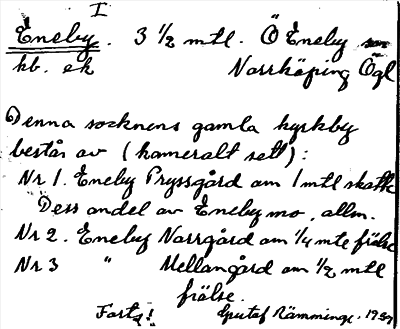 I
Eneby. 3 1/2 mtl. Ö Eneby sn
kb. ek Norrköping Ögl
Denna socknens gamla kyrkby
består av (kameralt sett):
Nr 1. Eneby Pryssgård om 1 mtl skatte
Dess andel av Eneby mo, allm.
Nr 2. Eneby Norrgård om 1/4 mtl frälse
Nr 3 " Mellangård om 1/2 mtl
frälse.
Forts! Gustaf Rämminge. 1937